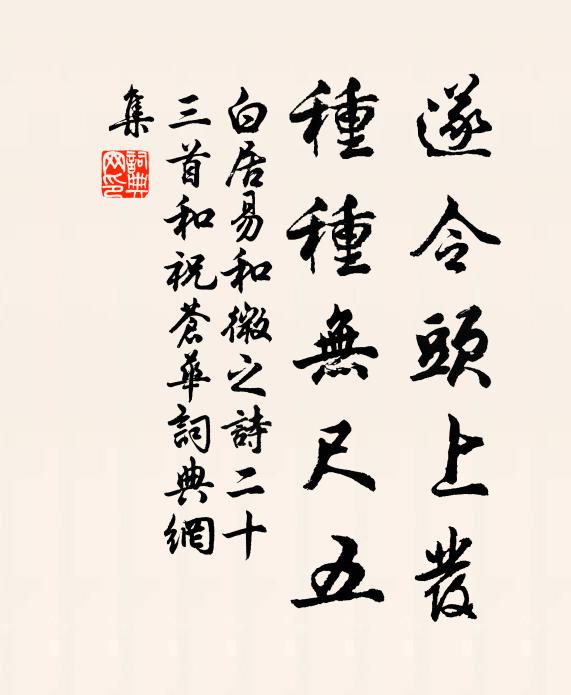 遂令頭上發
種種無尺五
白居易和微之詩二十
三首和祝蒼華詞典網
集
詞典
网印